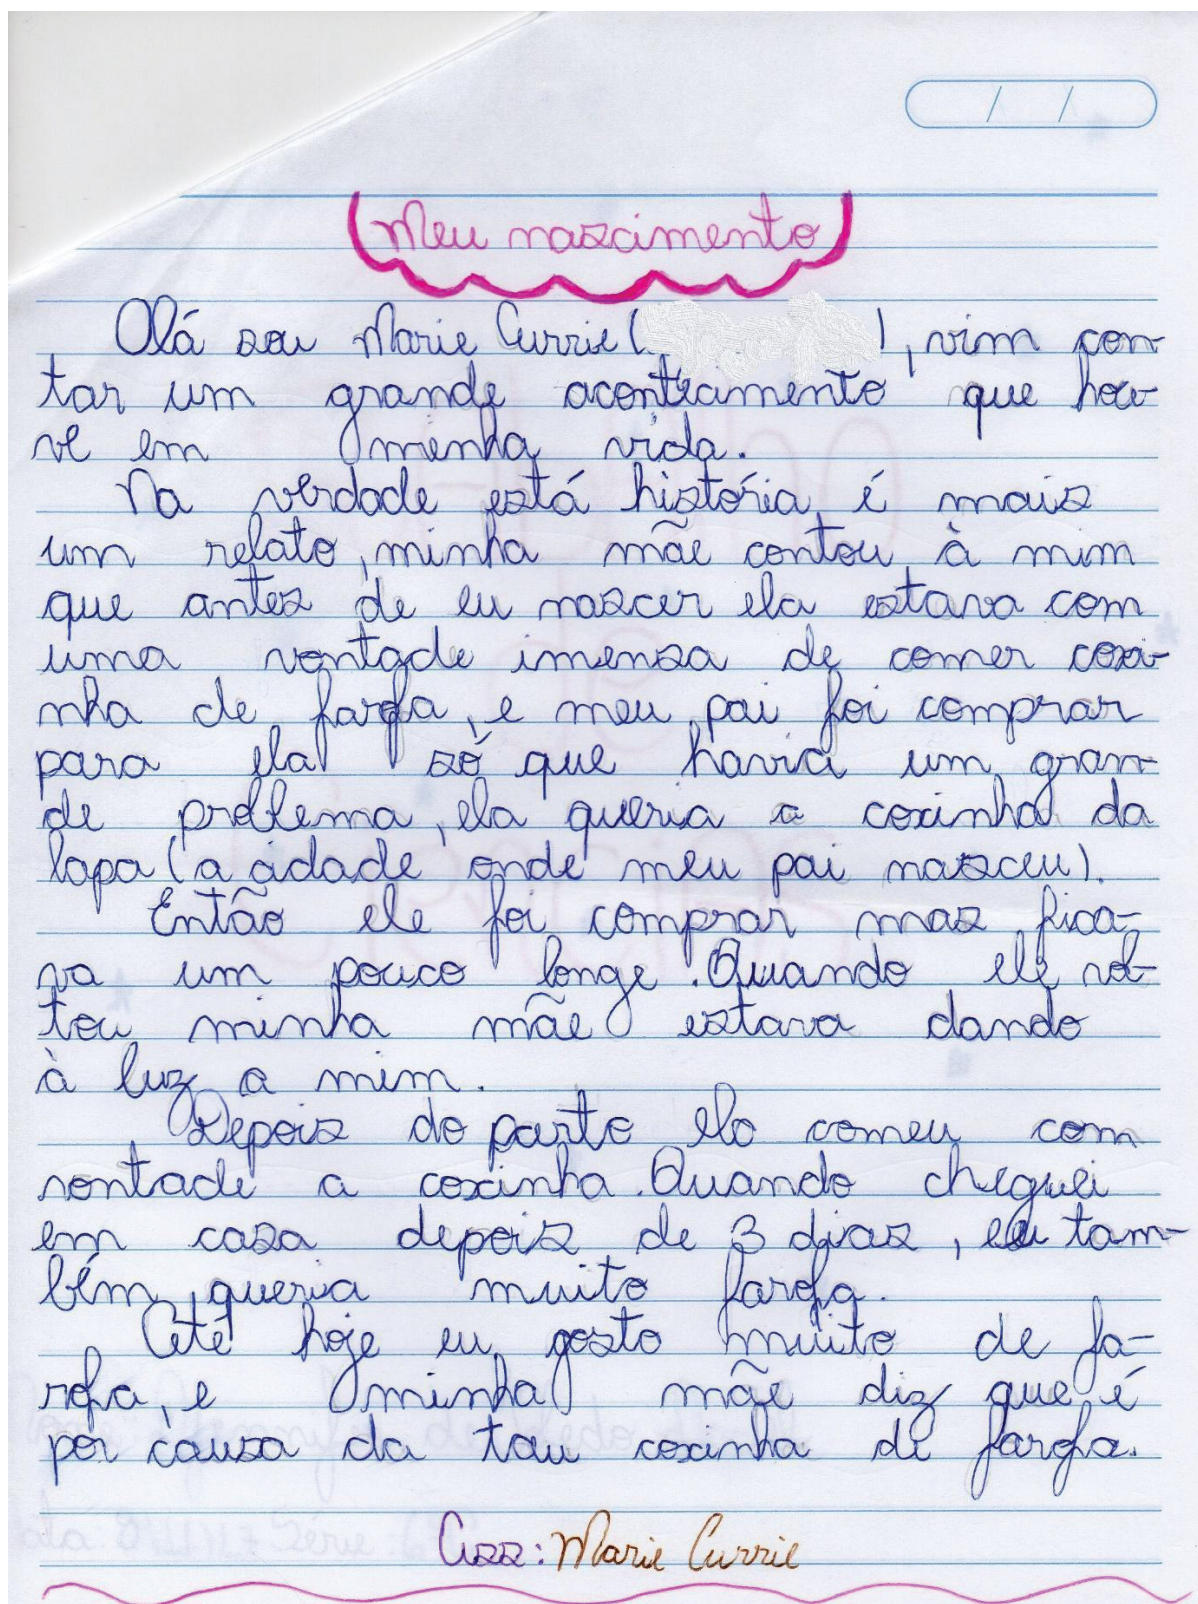 Meu nascimento
Olá sou Marie Currie ( ), vim con-
tar um grande acontecimento que hou-
ve em minha vida.
Na verdade está história é mais
um relato, minha mãe contou à mim
que antes de eu nascer ela estava com
uma vontade imensa de comer coxi-
nha de farofa, e meu pai foi comprar
para ela só que havia um gran-
de problema, ela queria a coxinha da
lapa (a cidade onde meu pai nasceu).
Então ele foi comprar mas fica-
va um pouco longe. Quando ele vol-
tou minha mãe estava dando
à luz a mim.
Depois do parto ela comeu com
vontade a coxinha. Quando cheguei
em casa depois de 3 dias, eu tam-
bém queria muito farofa.
Até hoje eu gosto muito de fa-
rofa, e minha mãe diz que é
por causa da tau coxinha de farofa.
Ass: Marie Currie